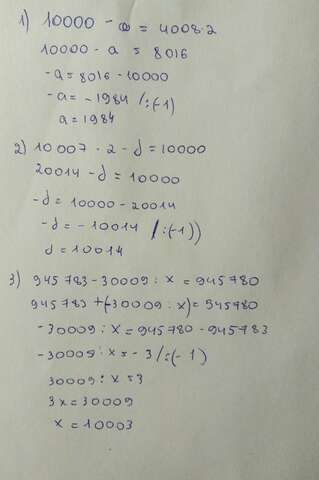 1) 10000 - a = 4008·2
10000 - a = 8016
-a = 8016 - 10000
-a = -1984 /:(-1)
a = 1984
2) 10007 · 2 - d = 10000
20014 - d = 10000
-d = 10000 - 20014
-d = -10014 /:(-1))
d = 10014
3) 945783 - 30009 : x = 945780
945783 + (-30009 : x) = 945780
-30009 : x = 945780 - 945783
-30009 : x = -3 /:(-1)
30009 : x = 3
3x = 30009
x = 10003